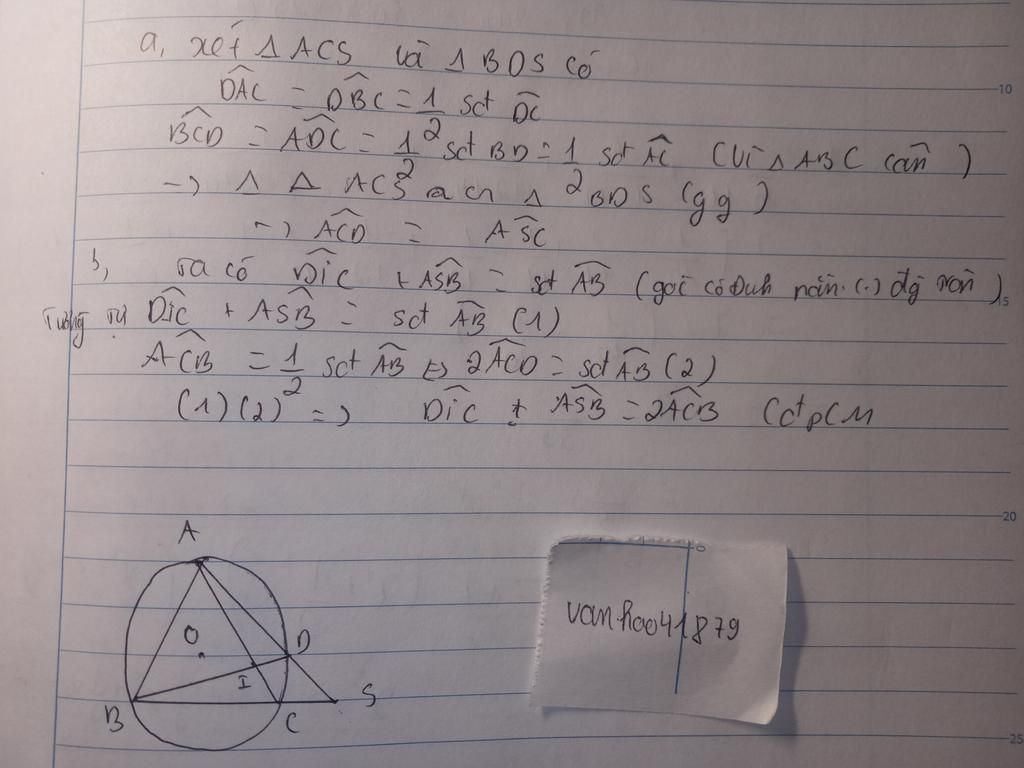 a, xét Δ ACS và Δ BDS có
DAC = DBC = 1/2 sđt DC
BCD = ADC = 1/2 sđt BD = 1/2 sđt AC (Vì Δ ABC cân)
-> Δ Δ ACS Δ BDS (gg)
-> ACD = ASC
b, Ta có DiC + ASB = sđt AB (góc có đỉnh
Tương tự DiC + ASB = sđt AB (1)
ACB = 1/2 sđt AB <=> 2ACD = sđt AB (2)
(1) (2) => DiC + ASB = 2ACB (đpCM
A
O
D
I
S
B
C
van.hao041879
10
15
20
25